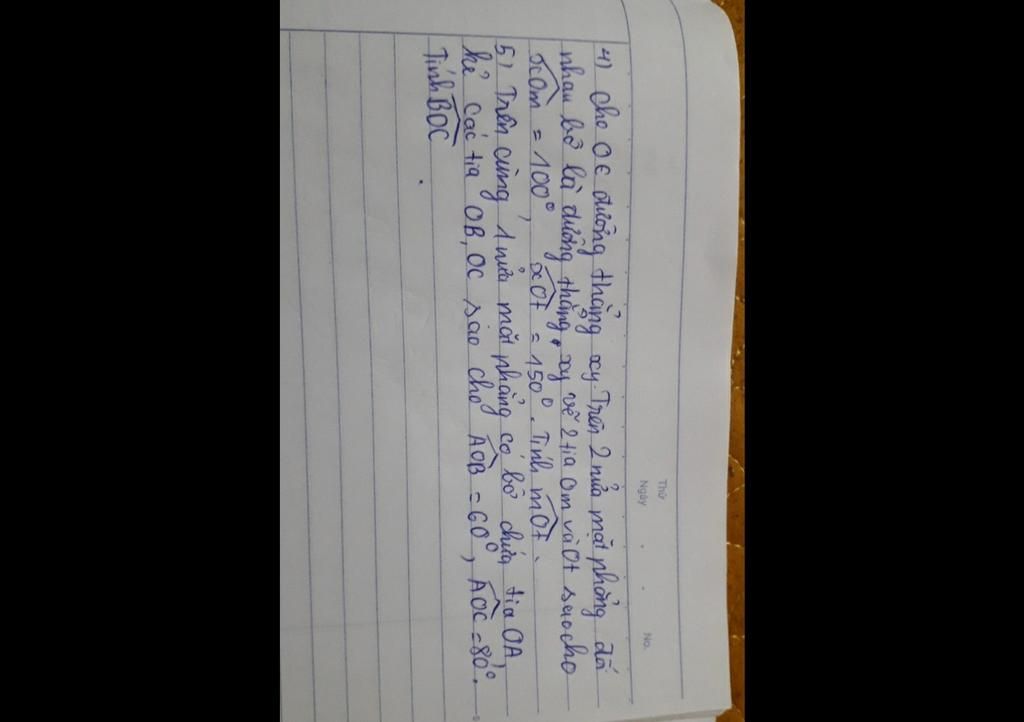 Thứ
Ngày . . No.
4) Cho O ∈ đường thẳng xy. Trên 2 nửa mặt phẳng đối
nhau bờ là đường thẳng xy vẽ 2 tia Om và Ot sao cho
xOm = 100°, xOt = 150°. Tính mOt.
5) Trên cùng 1 nửa mặt phẳng có bờ chứa tia OA,
kẻ các tia OB, OC sao cho AOB = 60°, AOC = 80°.
Tính BOC